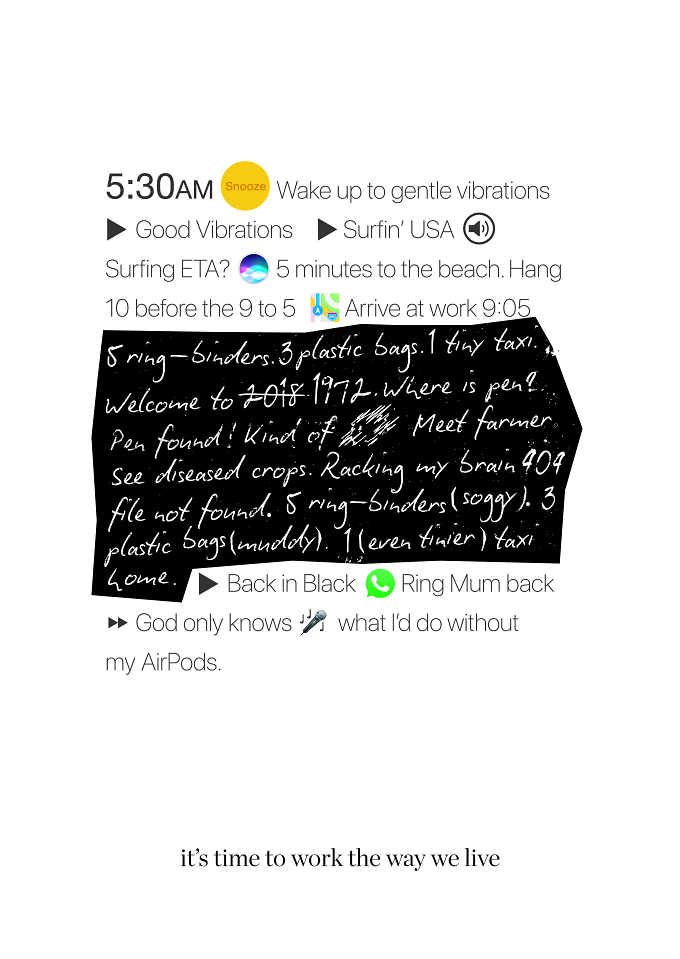 5:30AM Snooze Wake up to gentle vibrations
Good Vibrations Surfin’ USA
Surfing ETA? 5 minutes to the beach. Hang
10 before the 9 to 5 Arrive at work 9:05
5 ring-binders. 3 plastic bags. 1 tiny taxi.
Welcome to 2018 1972. Where is pen?
Pen found! Kind of Meet farmer.
See diseased crops. Racking my brain 404
file not found. 5 ring-binders (soggy). 3
plastic bags (muddy). 1 (even tinier) taxi
home. Back in Black Ring Mum back
God only knows what I’d do without
my AirPods.
it’s time to work the way we live